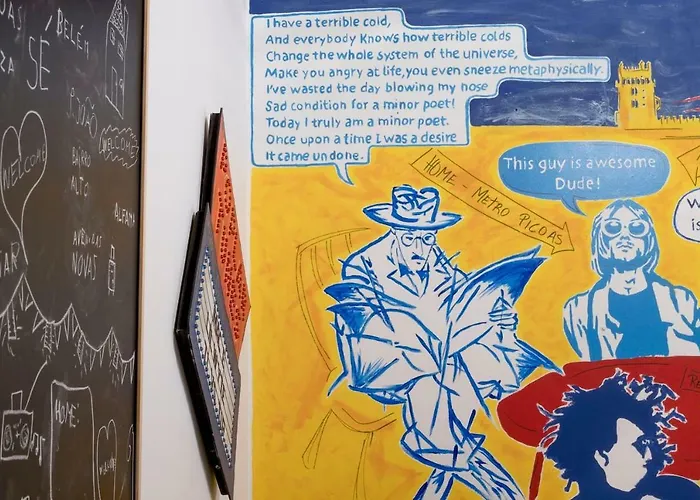 ZA
SÉ
BELÉM
WELCOME
BAIRRO
ALTO
ALFAMA
AVENIDAS
NOVAS
HOME.
I have a terrible cold,
And everybody knows how terrible colds
Change the whole system of the universe,
Make you angry at life, you even sneeze metaphysically.
I've wasted the day blowing my nose
Sad condition for a minor poet!
Today I truly am a minor poet.
Once upon a time I was a desire
It came undone.
HOME - METRO PICOAS
This guy is awesome
Dude!
W
is